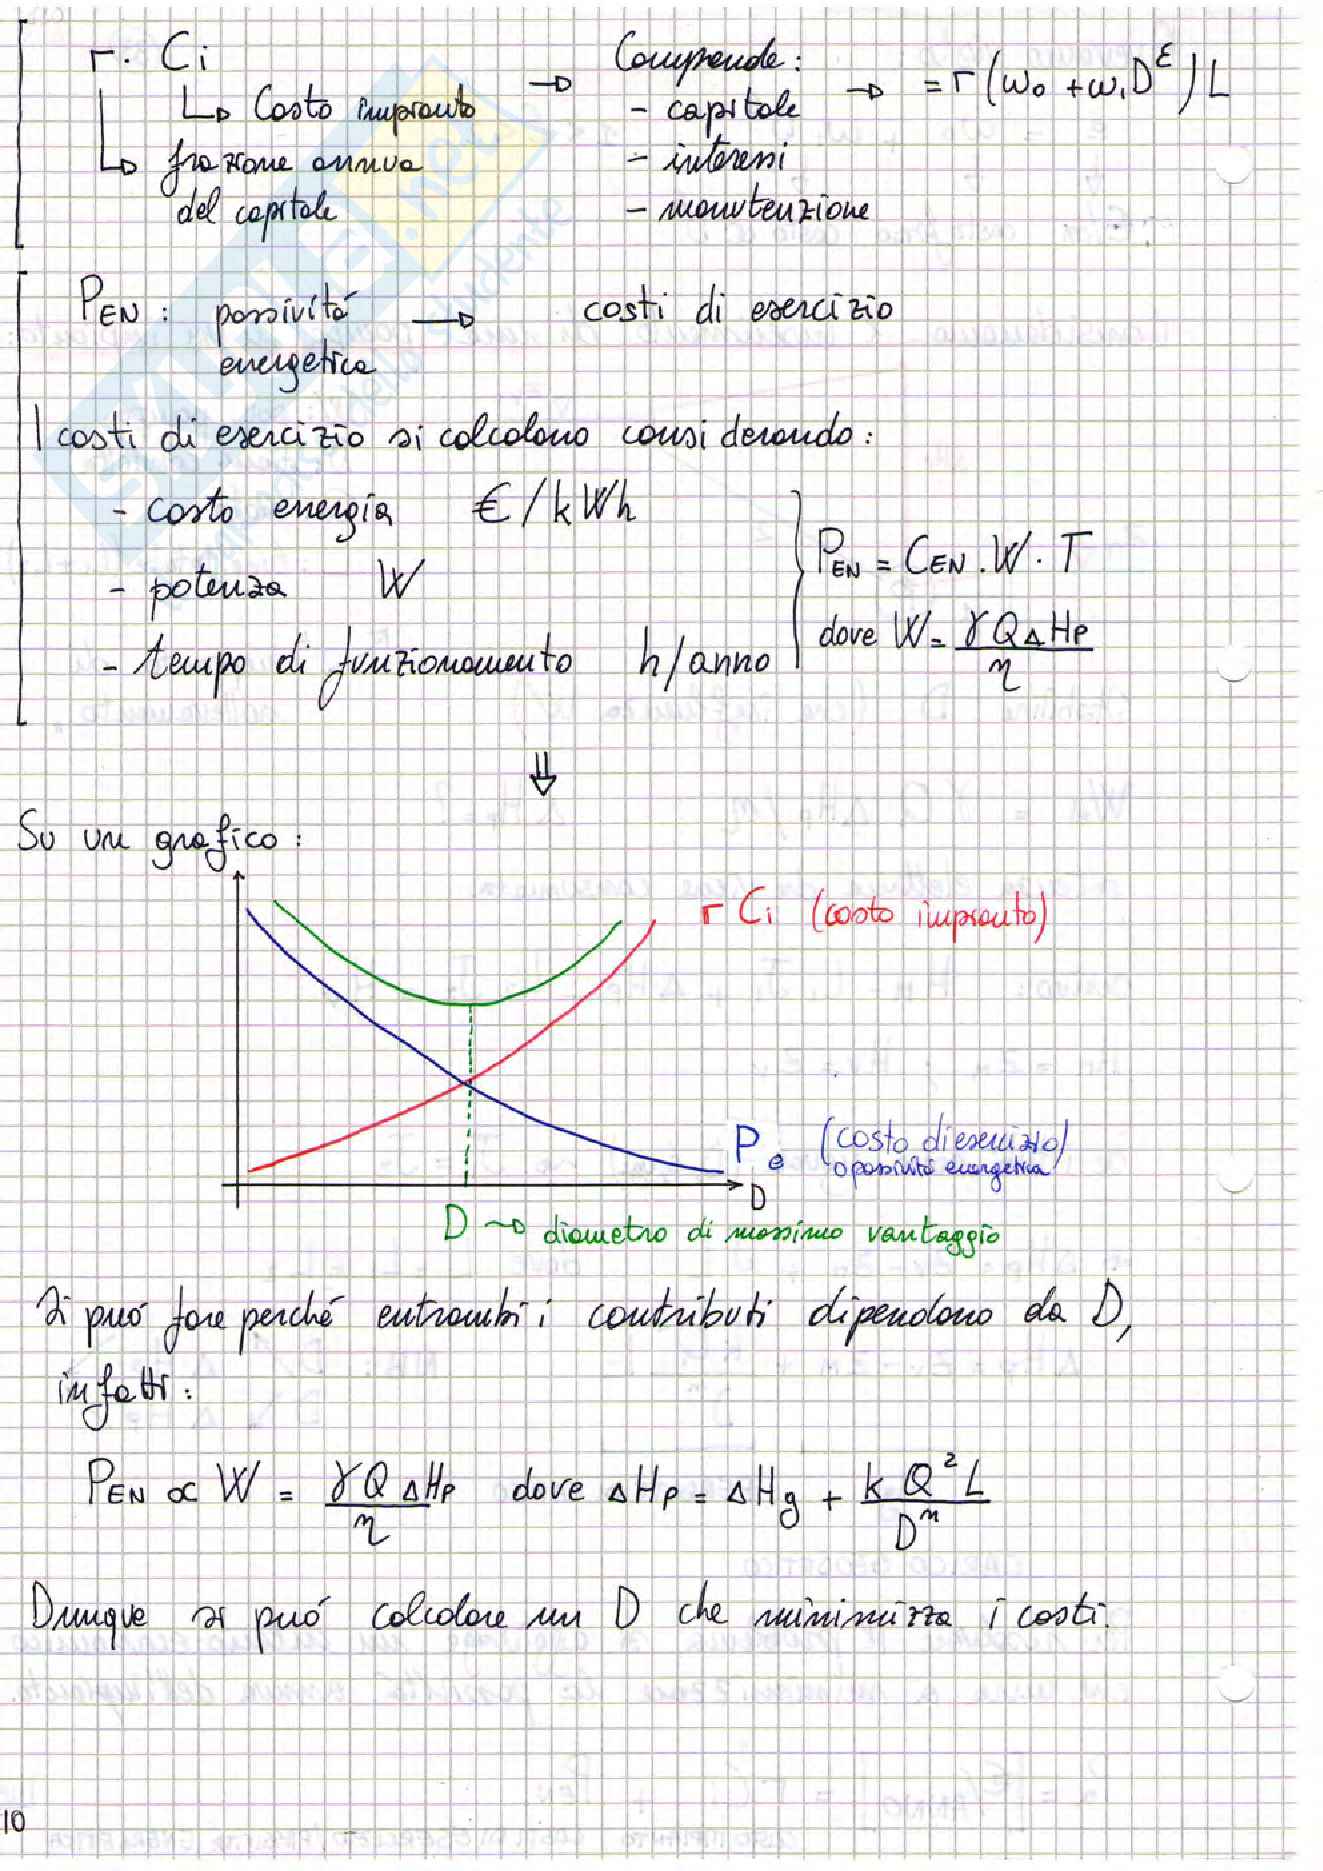 r · Ci
↳ Costo impianto
↳ frazione annua
del capitale
→ Comprende:
- capitale
- interessi
- manutenzione
→ = r (w₀ + w₁ D^ε) L
P_EN : passivitá
energetica
→ costi di esercizio
I costi di esercizio si calcolano considerando:
- costo energia €/kWh
- potenza W
- tempo di funzionamento h/anno
P_EN = C_EN · W · T
dove W = γ Q ΔHp / η
⇓
Su un grafico:
r Ci (costo impianto)
P e (costo di esercizio)
o passività energetica
D
D → diametro di massimo vantaggio
Si puó fare perché entrambi i contributi dipendono da D,
infatti:
P_EN ∝ W = γ Q ΔHp / η dove ΔHp = ΔHg + k Q² L / Dⁿ
Dunque si puó calcolare un D che minimizza i costi.
10